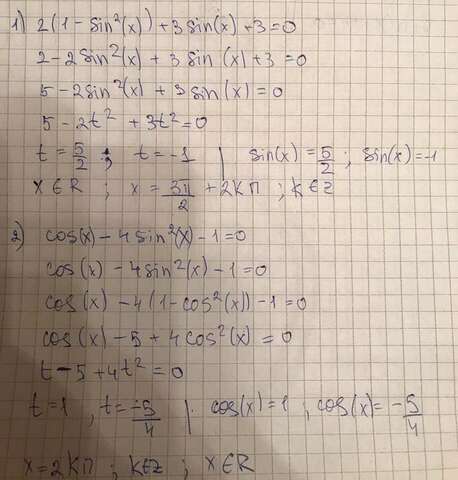 1) 2(1-sin²(x))+3sin(x)+3=0
2-2sin²(x)+3sin(x)+3=0
5-2sin²(x)+3sin(x)=0
5-2t²+3t²=0
t=5/2; t=-1 | sin(x)=5/2, sin(x)=-1
x∈R; x=3π/2+2kπ; k∈z
2) cos(x)-4sin²(x)-1=0
cos(x)-4sin²(x)-1=0
cos(x)-4(1-cos²(x))-1=0
cos(x)-5+4cos²(x)=0
t-5+4t²=0
t=1, t=-5/4 | cos(x)=1, cos(x)=-5/4
x=2kπ; k∈z; x∈R